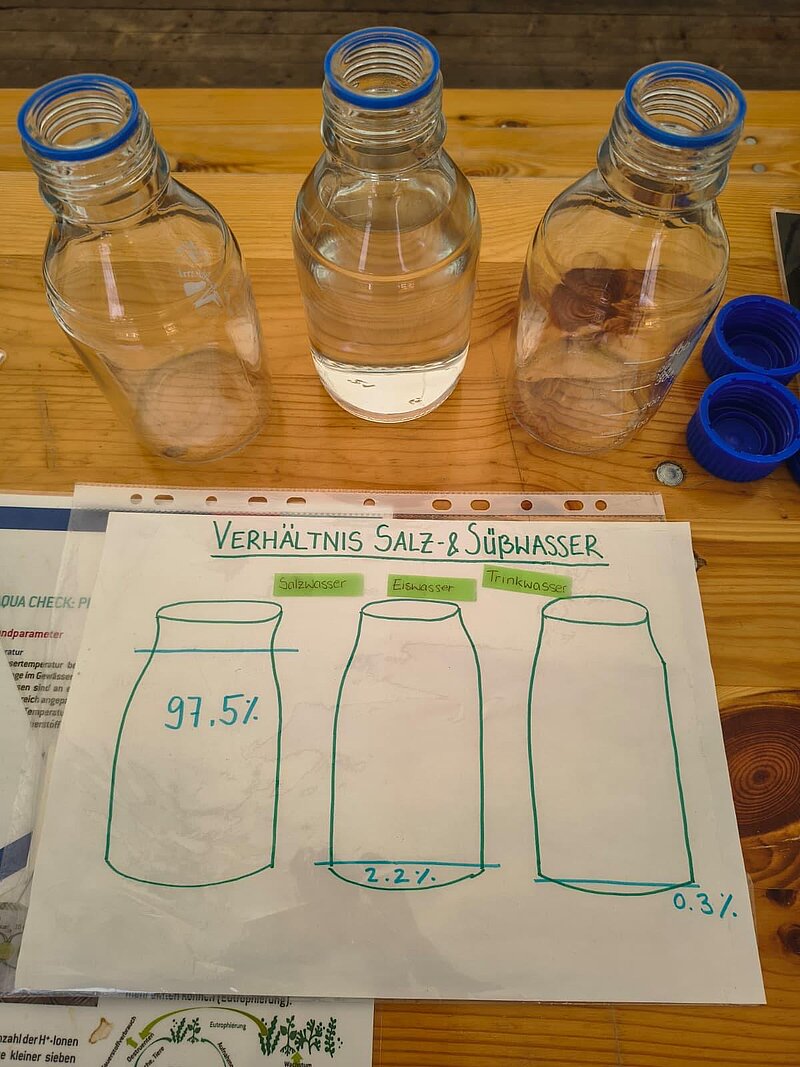 VERHÄLTNIS SALZ-& SÜßWASSER
Salzwasser
Eiswasser
Trinkwasser
97,5%
2.2%
0.3%
QUA CHECK: P
ndparameter
ratur
sertemperatur be
ge im Gewässer
sen sind an e
reich angep
Temperatu
uerstoff
(Eutrophierung).
nzahl der H⁺-Ionen
e kleiner sieben
Eutrophierung
Destruenten
Wachstum